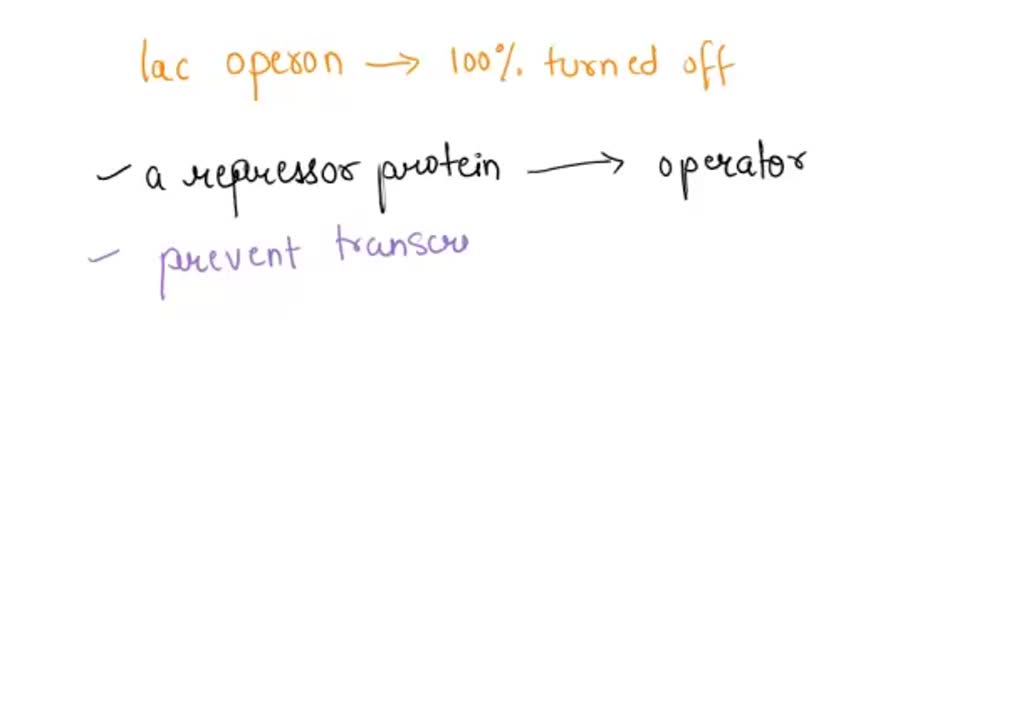 lac operon → 100% turned off
✓ a repressor protein → operator
✓ prevent transcr